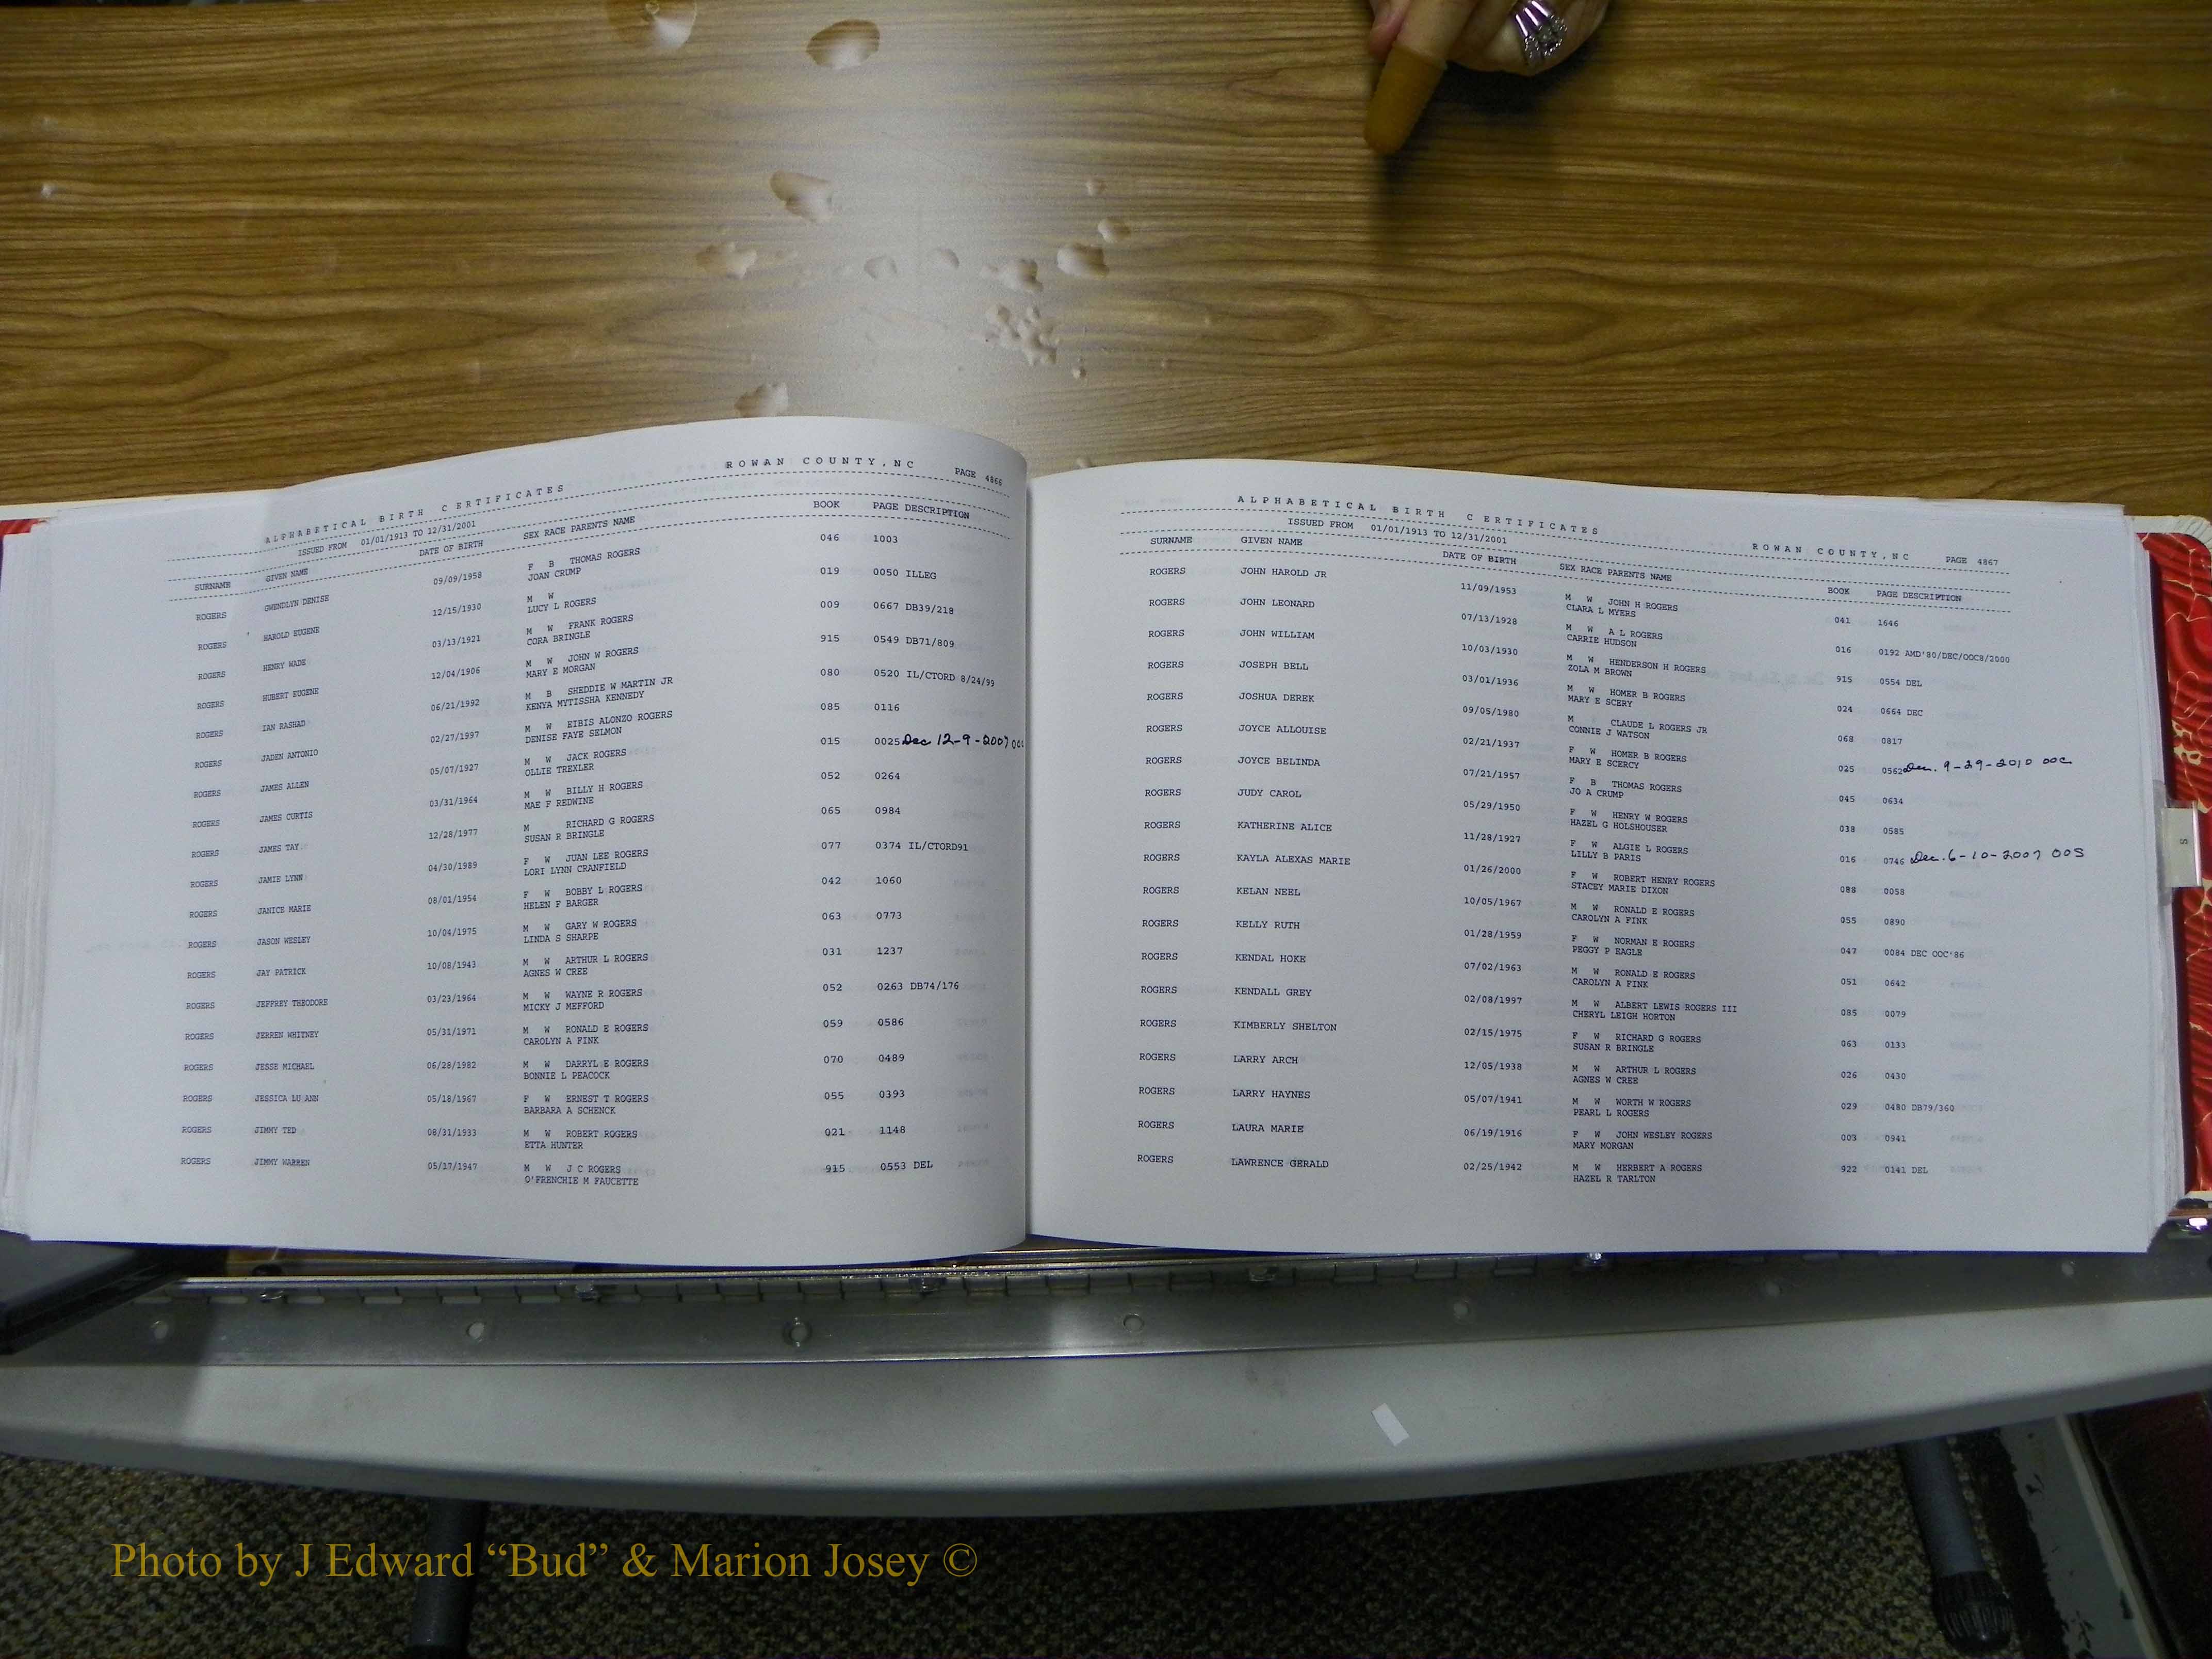 ALPHABETICAL BIRTH CERTIFICATES ROWAN COUNTY, NC PAGE 4866
ISSUED FROM 01/01/1913 TO 12/31/2001
SURNAME GIVEN NAME DATE OF BIRTH SEX RACE PARENTS NAME BOOK PAGE DESCRIPTION
ROGERS GWENDLYN DENISE 09/09/1958 F B THOMAS ROGERS 046 1003
JOAN CRUMP
ROGERS HAROLD EUGENE 12/15/1930 M W 019 0050 ILLEG
LUCY L ROGERS
ROGERS HENRY WADE 03/13/1921 M W FRANK ROGERS 009 0667 DB39/218
CORA BRINGLE
ROGERS HUBERT EUGENE 12/04/1906 M W JOHN W ROGERS 915 0549 DB71/809
MARY E MORGAN
ROGERS IAN RASHAD 06/21/1992 M B SHEDDIE W MARTIN JR 080 0520 IL/CTORD 8/24/99
KENYA MYTISSHA KENNEDY
ROGERS JADEN ANTONIO 02/27/1997 M W EIBIS ALONZO ROGERS 085 0116
DENISE FAYE SELMON
ROGERS JAMES ALLEN 05/07/1927 M W JACK ROGERS 015 0025 Dec 12-9-2007
OLLIE TREXLER
ROGERS JAMES CURTIS 03/31/1964 M W BILLY H ROGERS 052 0264
MAE F REDWINE
ROGERS JAMES TAY 12/28/1977 M RICHARD G ROGERS 065 0984
SUSAN R BRINGLE
ROGERS JAMIE LYNN 04/30/1989 F W JUAN LEE ROGERS 077 0374 IL/CTORD91
LORI LYNN CRANFIELD
ROGERS JANICE MARIE 08/01/1954 F W BOBBY L ROGERS 042 1060
HELEN F BARGER
ROGERS JASON WESLEY 10/04/1975 M W GARY W ROGERS 063 0773
LINDA S SHARPE
ROGERS JAY PATRICK 10/08/1943 M W ARTHUR L ROGERS 031 1237
AGNES W CREE
ROGERS JEFFREY THEODORE 03/23/1964 M W WAYNE R ROGERS 052 0263 DB74/176
MICKY J MEFFORD
ROGERS JERREN WHITNEY 05/31/1971 M W RONALD E ROGERS 059 0586
CAROLYN A FINK
ROGERS JESSE MICHAEL 06/28/1982 M W DARRYL E ROGERS 070 0489
BONNIE L PEACOCK
ROGERS JESSICA LU ANN 05/18/1967 F W ERNEST T ROGERS 055 0393
BARBARA A SCHENCK
ROGERS JIMMY TED 08/31/1933 M W ROBERT ROGERS 021 1148
ETTA HUNTER
ROGERS JIMMY WARREN 05/17/1947 M W J C ROGERS 915 0553 DEL
O'FRENCHIE M FAUCETTE
ALPHABETICAL BIRTH CERTIFICATES ROWAN COUNTY, NC PAGE 4867
ISSUED FROM 01/01/1913 TO 12/31/2001
SURNAME GIVEN NAME DATE OF BIRTH SEX RACE PARENTS NAME BOOK PAGE DESCRIPTION
ROGERS JOHN HAROLD JR 11/09/1953 M W JOHN H ROGERS 041 1646
CLARA L MYERS
ROGERS JOHN LEONARD 07/13/1928 M W A L ROGERS 016 0192 AMD'80/DEC/OOC8/2000
CARRIE HUDSON
ROGERS JOHN WILLIAM 10/03/1930 M W HENDERSON H ROGERS 915 0554 DEL
ZOLA M BROWN
ROGERS JOSEPH BELL 03/01/1936 M W HOMER B ROGERS 024 0664 DEC
MARY E SCERY
ROGERS JOSHUA DEREK 09/05/1980 M CLAUDE L ROGERS JR 068 0817
CONNIE J WATSON
ROGERS JOYCE ALLOUISE 02/21/1937 F W HOMER B ROGERS 025 0562 Dec. 9-29-2010 OOC
MARY E SCERCY
ROGERS JOYCE BELINDA 07/21/1957 F B THOMAS ROGERS 045 0634
JO A CRUMP
ROGERS JUDY CAROL 05/29/1950 F W HENRY W ROGERS 038 0585
HAZEL G HOLSHOUSER
ROGERS KATHERINE ALICE 11/28/1927 F W ALGIE L ROGERS 016 0746 Dec. 6-10-2007 OOS
LILLY B PARIS
ROGERS KAYLA ALEXAS MARIE 01/26/2000 F W ROBERT HENRY ROGERS 088 0058
STACEY MARIE DIXON
ROGERS KELAN NEEL 10/05/1967 M W RONALD E ROGERS 055 0890
CAROLYN A FINK
ROGERS KELLY RUTH 01/28/1959 F W NORMAN E ROGERS 047 0084 DEC OOC'86
PEGGY P EAGLE
ROGERS KENDAL HOKE 07/02/1963 M W RONALD E ROGERS 051 0642
CAROLYN A FINK
ROGERS KENDALL GREY 02/08/1997 M W ALBERT LEWIS ROGERS III 085 0079
CHERYL LEIGH HORTON
ROGERS KIMBERLY SHELTON 02/15/1975 F W RICHARD G ROGERS 063 0133
SUSAN R BRINGLE
ROGERS LARRY ARCH 12/05/1938 M W ARTHUR L ROGERS 026 0430
AGNES W CREE
ROGERS LARRY HAYNES 05/07/1941 M W WORTH W ROGERS 029 0480 DB79/360
PEARL L ROGERS
ROGERS LAURA MARIE 06/19/1916 F W JOHN WESLEY ROGERS 003 0941
MARY MORGAN
ROGERS LAWRENCE GERALD 02/25/1942 M W HERBERT A ROGERS 922 0141 DEL
HAZEL R TARLTON
S
Photo by J Edward “Bud” & Marion Josey ©